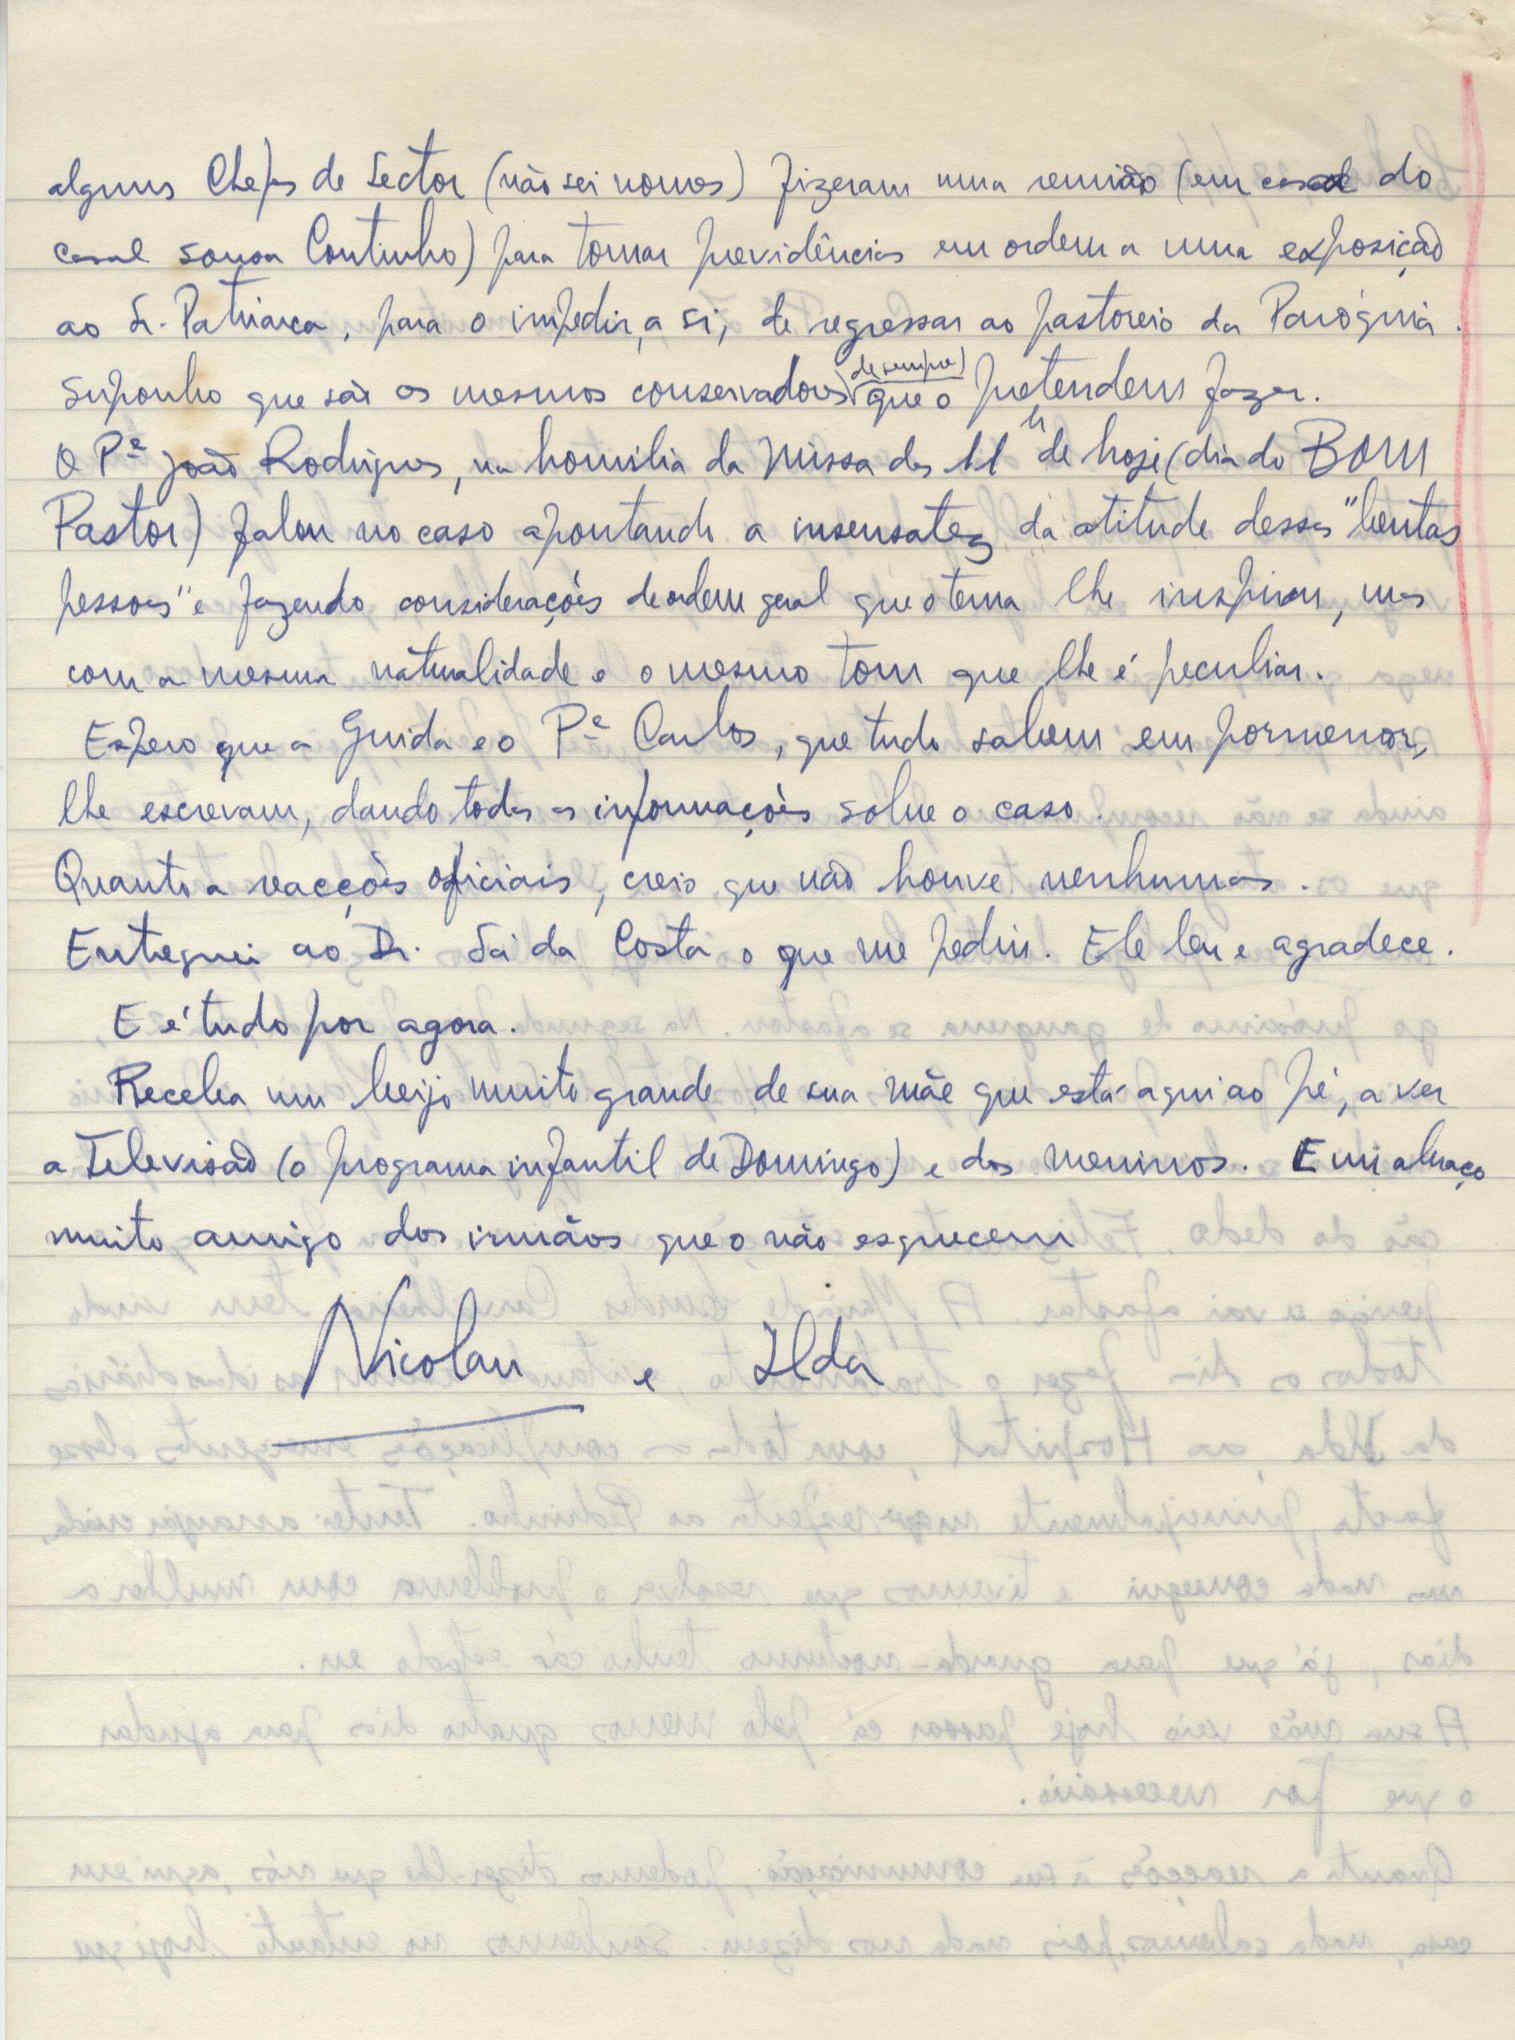 alguns Chefes de Sector (não sei nomes) fizeram uma reunião (em casa do
casal Sousa Coutinho) para tomar previdências em ordem a uma exposição
ao Sr. Patriarca, para o impedir, a si, de regressar ao pastoreio da Paróquia.
Suponho que são os mesmos conservadores (de sempre) que o pretendem fazer.
O Pe João Rodrigues, na homilia da Missa das 11 h de hoje (dia do Bom
Pastor) falou no caso apontando a insensatez da atitude dessas "bentas
pessoas" e fazendo considerações de ordem geral que o tema lhe inspirou, mas
com a mesma naturalidade e o mesmo tom que lhe é peculiar.
Espero que a Guida e o Pe Carlos, que tudo sabem em pormenor,
lhe escrevam, dando todas as informações sobre o caso.
Quanto a reacções oficiais, creio que não houve nenhumas.
Entreguei ao Dr. Sá da Costa o que me pediu. Ele leu e agradece.
E é tudo por agora.
Receba um beijo muito grande de sua mãe que está aqui ao pé, a ver
a Televisão (o programa infantil de Domingo) e dos meninos. E um abraço
muito amigo dos irmãos que o não esquecem
Nicolau e Ilda